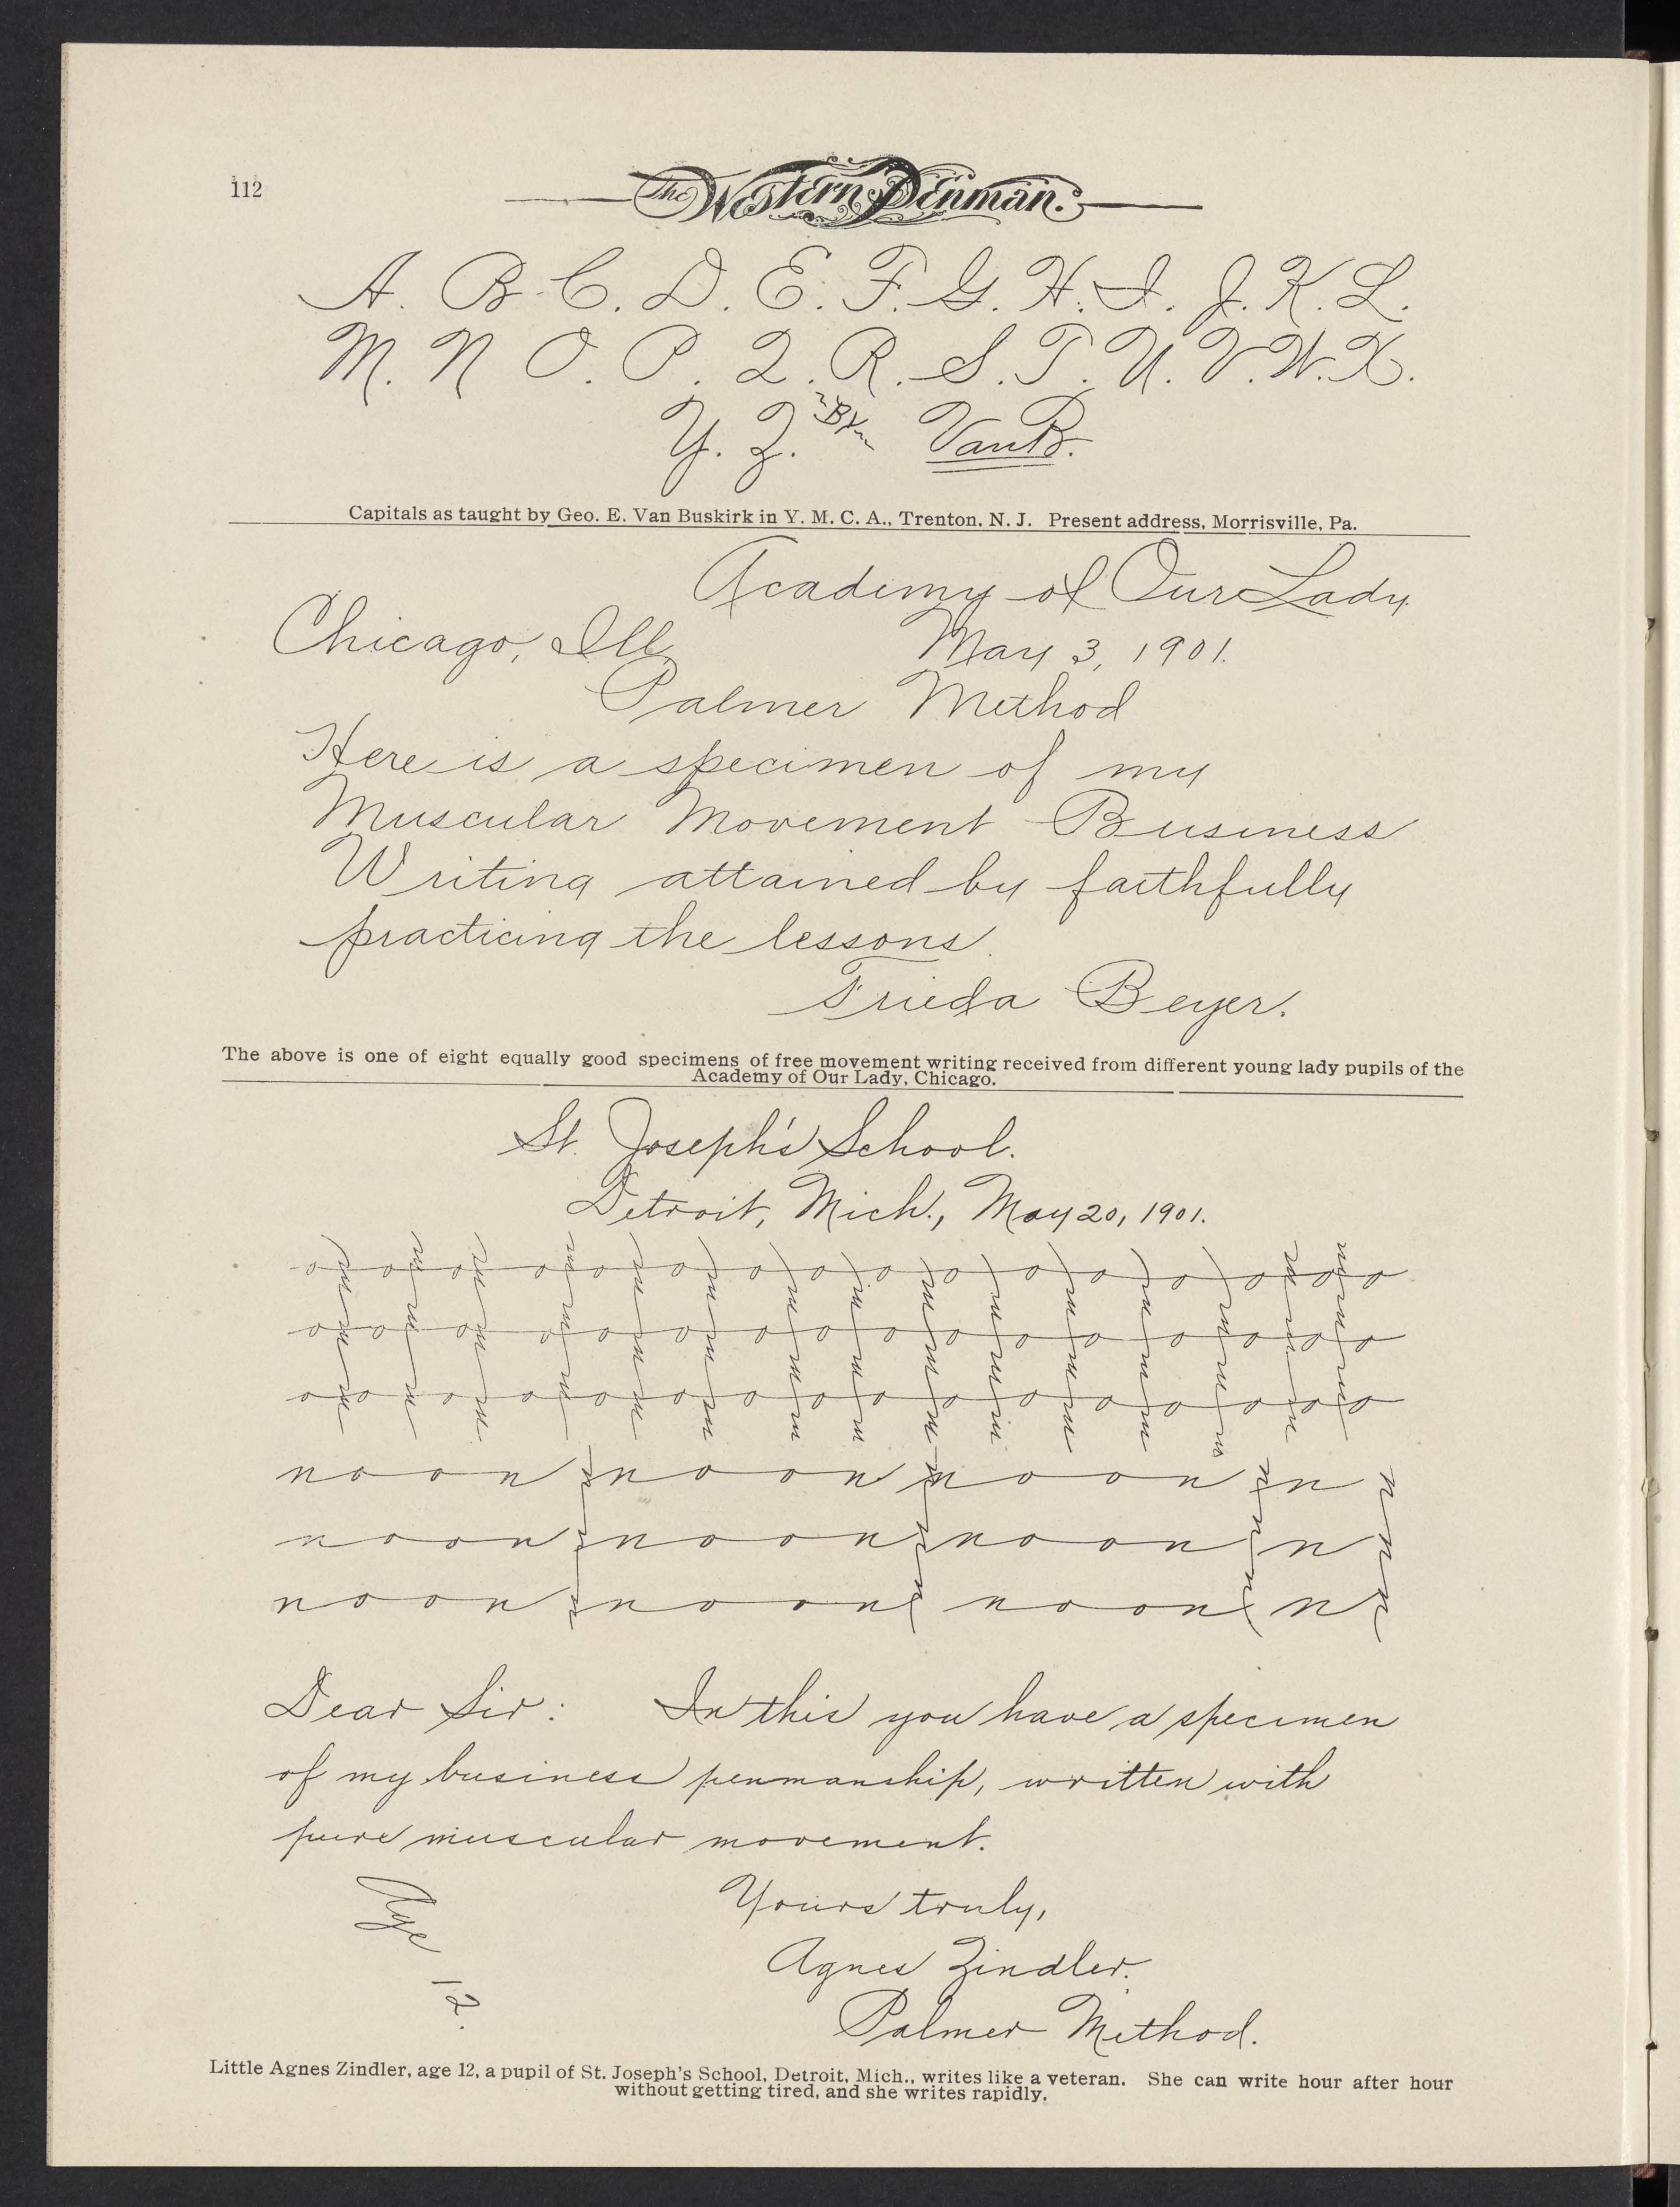 112
The Western Penman.
A. B. C. D. E. F. G. H. I. J. K. L.
M. N O. P. Q. R. S. T. U. V. W. X.
Y. Z. By Van B.
Capitals as taught by Geo. E. Van Buskirk in Y. M. C. A., Trenton, N. J. Present address, Morrisville, Pa.
Academy of Our Lady
Chicago, Ill. May 3, 1901.
Palmer Method
Here is a specimen of my
Muscular Movement Business
Writing attained by faithfully
practicing the lessons.
Frieda Beyer.
The above is one of eight equally good specimens of free movement writing received from different young lady pupils of the
Academy of Our Lady, Chicago.
St. Joseph's School.
Detroit, Mich., May 20, 1901.
o o o o o o o o o o o o o o o o
o o o o o o o o o o o o o o o o
o o o o o o o o o o o o o o o o
noon noon noon n
noon noon noon n
noon noon noon n
Dear Sir: In this you have a specimen
of my business penmanship, written with
pure muscular movement.
Yours truly,
Agnes Zindler.
Age 12.
Palmer Method.
Little Agnes Zindler, age 12, a pupil of St. Joseph's School, Detroit, Mich., writes like a veteran. She can write hour after hour
without getting tired, and she writes rapidly.